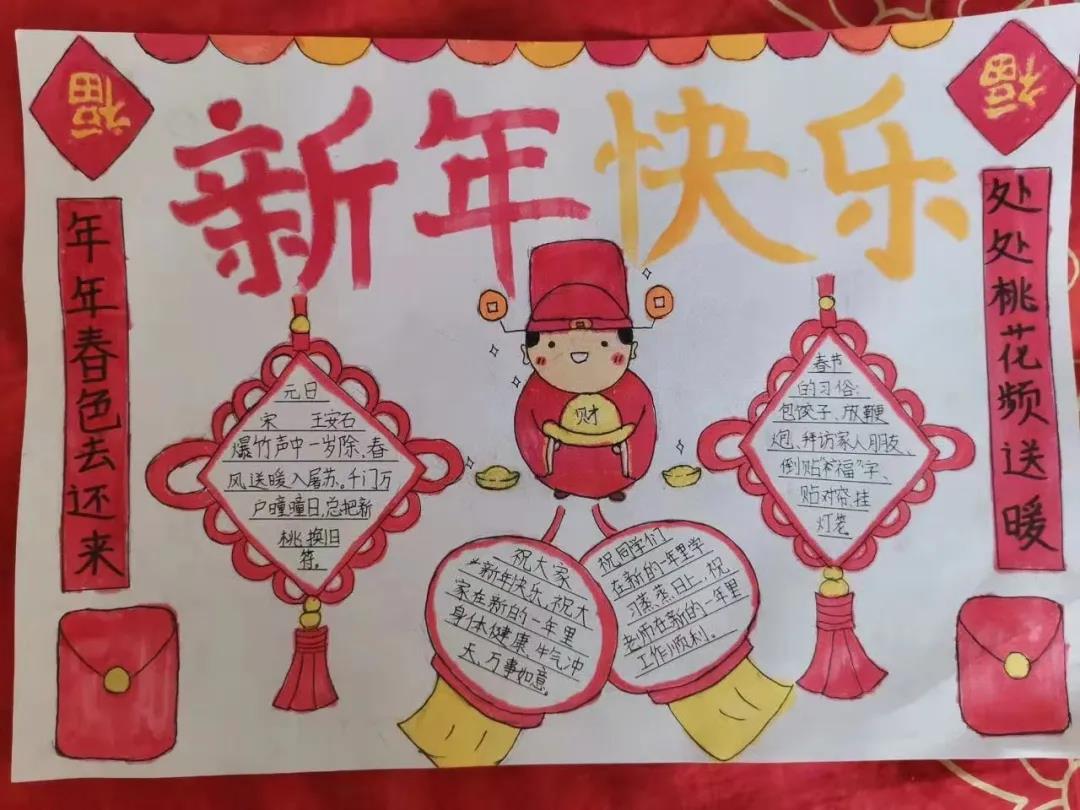 福
新年快乐
福
年年春色去还来
处处桃花频送暖
元日
宋 王安石
爆竹声中一岁除,春
风送暖入屠苏。千门万
户曈曈日,总把新
桃换旧
符。
财
春节
的习俗:
包饺子、放鞭
炮、拜访家人朋友、
倒贴“福”字、
贴对帘、挂
灯笼
祝大家
新年快乐,祝大
家在新的一年里
身体健康、牛气冲
天、万事如意。
祝同学们
在新的一年里学
习蒸蒸日上,祝
老师在新的一年里
工作顺利。